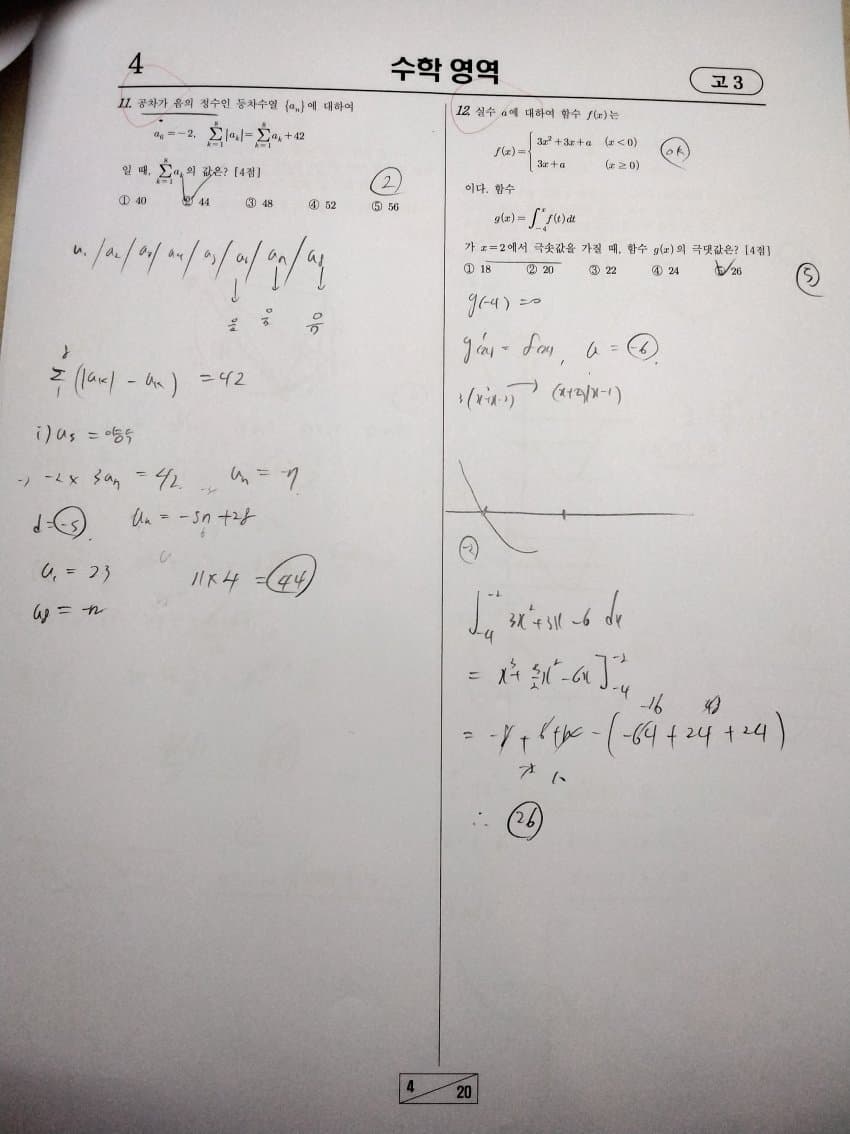 4
수학 영역
고 3
11. 공차가 음의 정수인 등차수열 {aₙ}에 대하여
a₆=-2, ∑ₖ₌₁⁸|aₖ|=∑ₖ₌₁⁸aₖ+42
일 때, ∑ₖ₌₁⁸aₖ의 값은? [4점]
②
① 40 ② 44 ③ 48 ④ 52 ⑤ 56
a₂ / a₃ / a₄ / a₅ / a₆ / a₇ / a₈
음 음 음
∑₁⁸ (|aₖ| - aₖ) = 42
i) a₅ = 양수
→ -2 × 3a₇ = 42 a₇ = -7
d = -5. aₙ = -5n + 28
a₁ = 23 11 × 4 = 44
a₈ = -12
12. 실수 a에 대하여 함수 f(x)는
f(x)={ 3x²+3x+a (x<0)
3x+a (x≥0)
ok
이다. 함수
g(x)=∫₋₄ˣ f(t)dt
가 x=2에서 극솟값을 가질 때, 함수 g(x)의 극댓값은? [4점]
① 18 ② 20 ③ 22 ④ 24 ⑤ 26
⑤
g(-4) = 0
g'(x) = f(x), a = -6.
3(x²+x-2) → (x+2)(x-1)
-2
∫₋₄⁻² 3x²+3x-6 dx
= x³+3/2x²-6x]₋₄⁻²
-16 48
- (-64 + 24 + 24)
∴ 26
4
20